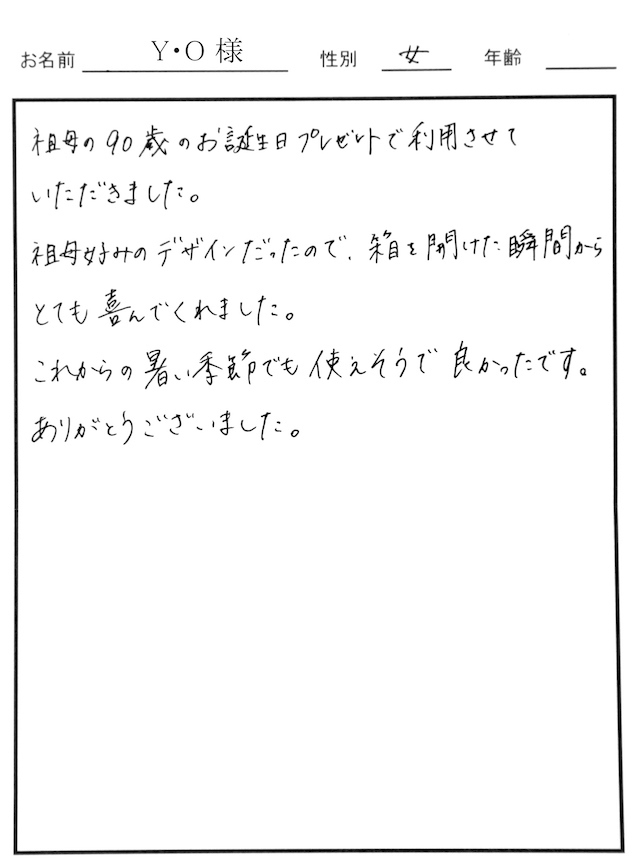 お名前 Y・O 様 性別 女 年齢
祖母の90歳のお誕生日プレゼントで利用させて
いただきました。
祖母好みのデザインだったので、箱を開けた瞬間から
とても喜んでくれました。
これからの暑い季節でも使えそうで良かったです。
ありがとうございました。